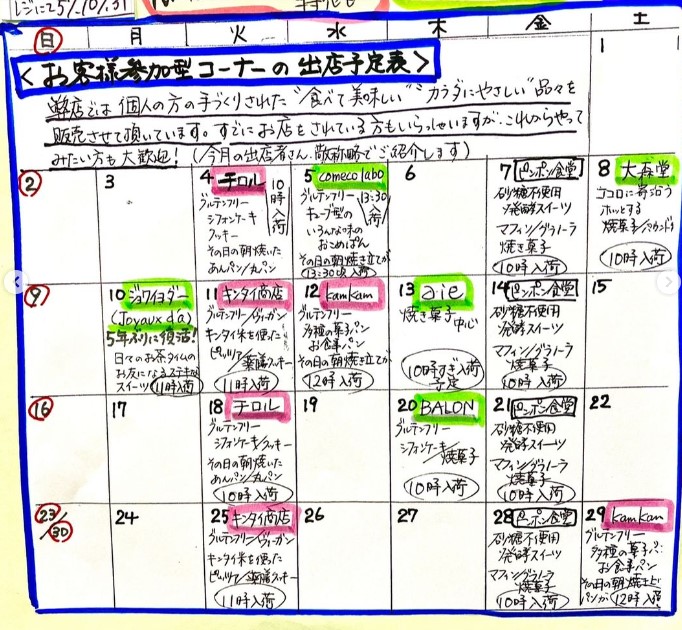 レジにて5%,10%,
日 月 火 水 木 金 土
1
<お客様参加型コーナーの出店予定表>
弊店では個人の方の手づくりされた"食べて美味しい""カラダにやさしい"品々を
販売させて頂いています。すでにお店をされている方もいらっしゃいますが、これからやって
みたい方も大歓迎!(今月の出店者さん、敬称略でご紹介します)
2
3
4 チロル
グルテンフリー
シフォンケーキ
クッキー
その日の朝焼いた
あんパン/丸パン
10時入荷
5 comeco labo
グルテンフリー
キューブ型の
いろんな味の
おこめぱん
その日の朝焼き立てが
13:30頃入荷
13:30入荷
6
7 ピンポン食堂
砂糖不使用
発酵スイーツ
マフィン/グラノーラ
焼き菓子
10時入荷
8 大森堂
ココロに寄沿う
ホッとする
焼菓子/
10時入荷
9
10 ジョワイヨダー
(Joyaux d'a)
5年ぶりに復活!
日々のお茶タイムの
お友になるステキな
スイーツ 11時入荷
11 キンタイ商店
グルテンフリー/ヴィーガン
キンタイ米を使った
ピッツァ/薬膳クッキー
11時入荷
12 kamkam
グルテンフリー
多種の菓子パン
お食事パン
その日の朝焼き立てが
12時入荷
13 aie
焼き菓子中心
10時すぎ入荷
予定
14 ピンポン食堂
砂糖不使用
発酵スイーツ
マフィン/グラノーラ
焼菓子
10時入荷
15
16
17
18 チロル
グルテンフリー
シフォンケーキ/クッキー
その日の朝焼いた
あんパン/丸パン
10時入荷
19
20 BALON
グルテンフリー
シフォンケーキ/
焼菓子
10時入荷
21 ピンポン食堂
砂糖不使用
発酵スイーツ
マフィン/グラノーラ
焼菓子
10時入荷
22
23/30
24
25 キンタイ商店
グルテンフリー/ヴィーガン
キンタイ米を使った
ピッツァ/薬膳クッキー
11時入荷
26
27
28 ピンポン食堂
砂糖不使用
発酵スイーツ
マフィン/グラノーラ
焼菓子
10時入荷
29 kamkam
グルテンフリー
多種の菓子パン
お食事パン
その日の朝焼き上げ
パンが 12時入荷